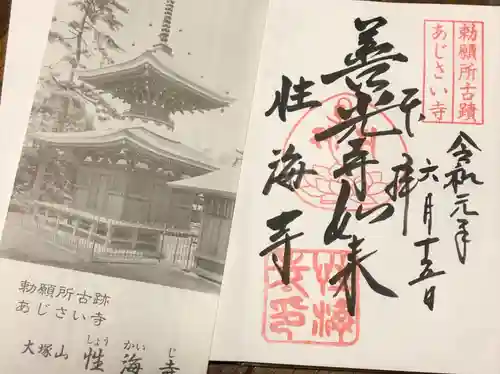 勅願所古蹟
あじさい寺
奉拝
令和元年
六月十五日
善光寺如来
性海寺
勅願所古跡
あじさい寺
大塚山 性海寺
しょう かい じ